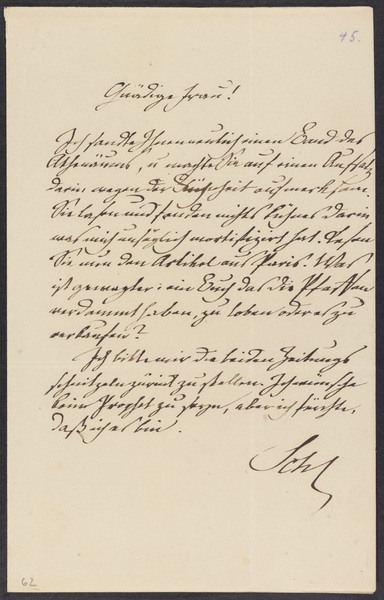 45.
Gnädige Frau!
Ich sandte Ihnen neulich einen Band des
Athenäums, u machte Sie auf einen Aufsatz
darin wegen der Kühnheit aufmerksam.
Sie lasen und fanden nichts Kühnes darin
was mich unsäglich mortifizirt hat. Lesen
Sie nun den Artikel aus Paris. Was
ist gewagter: ein Buch das die Pfaffen
verdammt haben, zu loben oder es zu
verkaufen?
Ich bitte mir die beiden Zeitungs
schnitzeln zurück zu stellen. Ich wünsche
kein Prophet zu seyn, aber ich fürchte,
daß ich es bin.
Sch
62